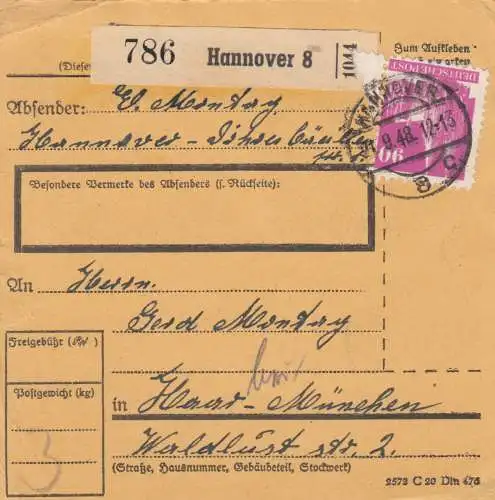 786 Hannover 8 1044
Zum Aufkleben
(Diese
Absender: E. Montag
Hannover-
Besondere Vermerke des Absenders (s. Rückseite):
HANNOVER
11.9.48. 12-13
8 c
DEUTSCHE POST
90
An Herrn
Gerd Montag
in Haar-München
Waldlust str. 2.
(Straße, Hausnummer, Gebäudeteil, Stockwerk)
Freigebühr (RM)
Postgewicht (kg)
3
2573 C 20 Din 476